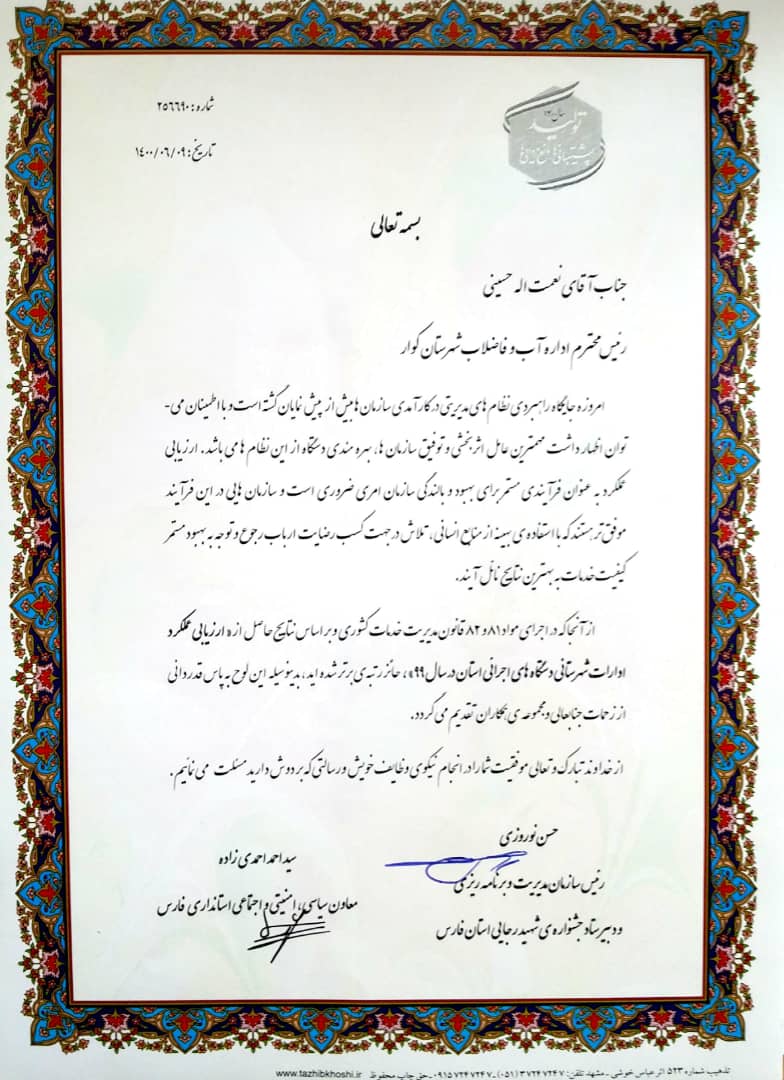 سال ۱۴۰۰
تولید
پشتیبانی‌ها، مانع‌زدایی‌ها
شماره: ۲۵۶۶۹۰
تاریخ: ۱۴۰۰/۰۶/۰۹
بسمه تعالی
جناب آقای نعمت اله حسینی
رئیس محترم اداره آب و فاضلاب شهرستان کوار
امروزه جایگاه راهبردی نظام های مدیریتی در کارآمدی سازمان ها بیش از پیش نمایان گشته است و با اطمینان می-
توان اظهار داشت مهمترین عامل اثربخشی و توفیق سازمان ها، بهره مندی دستگاه از این نظام ها می باشد. ارزیابی
عملکرد به عنوان فرآیندی مستمر برای بهبود و بالندگی سازمان امری ضروری است و سازمان هایی در این فرآیند
موفق تر هستند که با استفاده ی بهینه از منابع انسانی، تلاش در جهت کسب رضایت ارباب رجوع و توجه به بهبود مستمر
کیفیت خدمات به بهترین نتایج نائل آیند.
از آنجا که در اجرای مواد ۸۱ و ۸۲ قانون مدیریت خدمات کشوری و بر اساس نتایج حاصل از « ارزیابی عملکرد
ادارات شهرستانی دستگاه های اجرائی استان در سال ۹۹»، حائز رتبه ی برتر شده اید، بدینوسیله این لوح به پاس قدردانی
از زحمات جنابعالی و مجموعه ی همکاران تقدیم می گردد.
از خداوند تبارک و تعالی موفقیت شما را در انجام نیکوی وظایف خویش و رسالتی که بر دوش دارید مسئلت می نمائیم.
حسن نوروزی
رئیس سازمان مدیریت و برنامه ریزی
و دبیر ستاد جشنواره ی شهید رجایی استان فارس
سید احمد احمدی زاده
معاون سیاسی، امنیتی و اجتماعی استانداری فارس
تذهیب شماره ۵۲۳ اثر عباس خوشی ـ مشهد تلفن: ۳۷۲۴۷۲۴۷ (۰۵۱) ـ ۰۹۱۵۷۲۴۷۲۴۷ ـ حق چاپ محفوظ www.tazhibkhoshi.ir